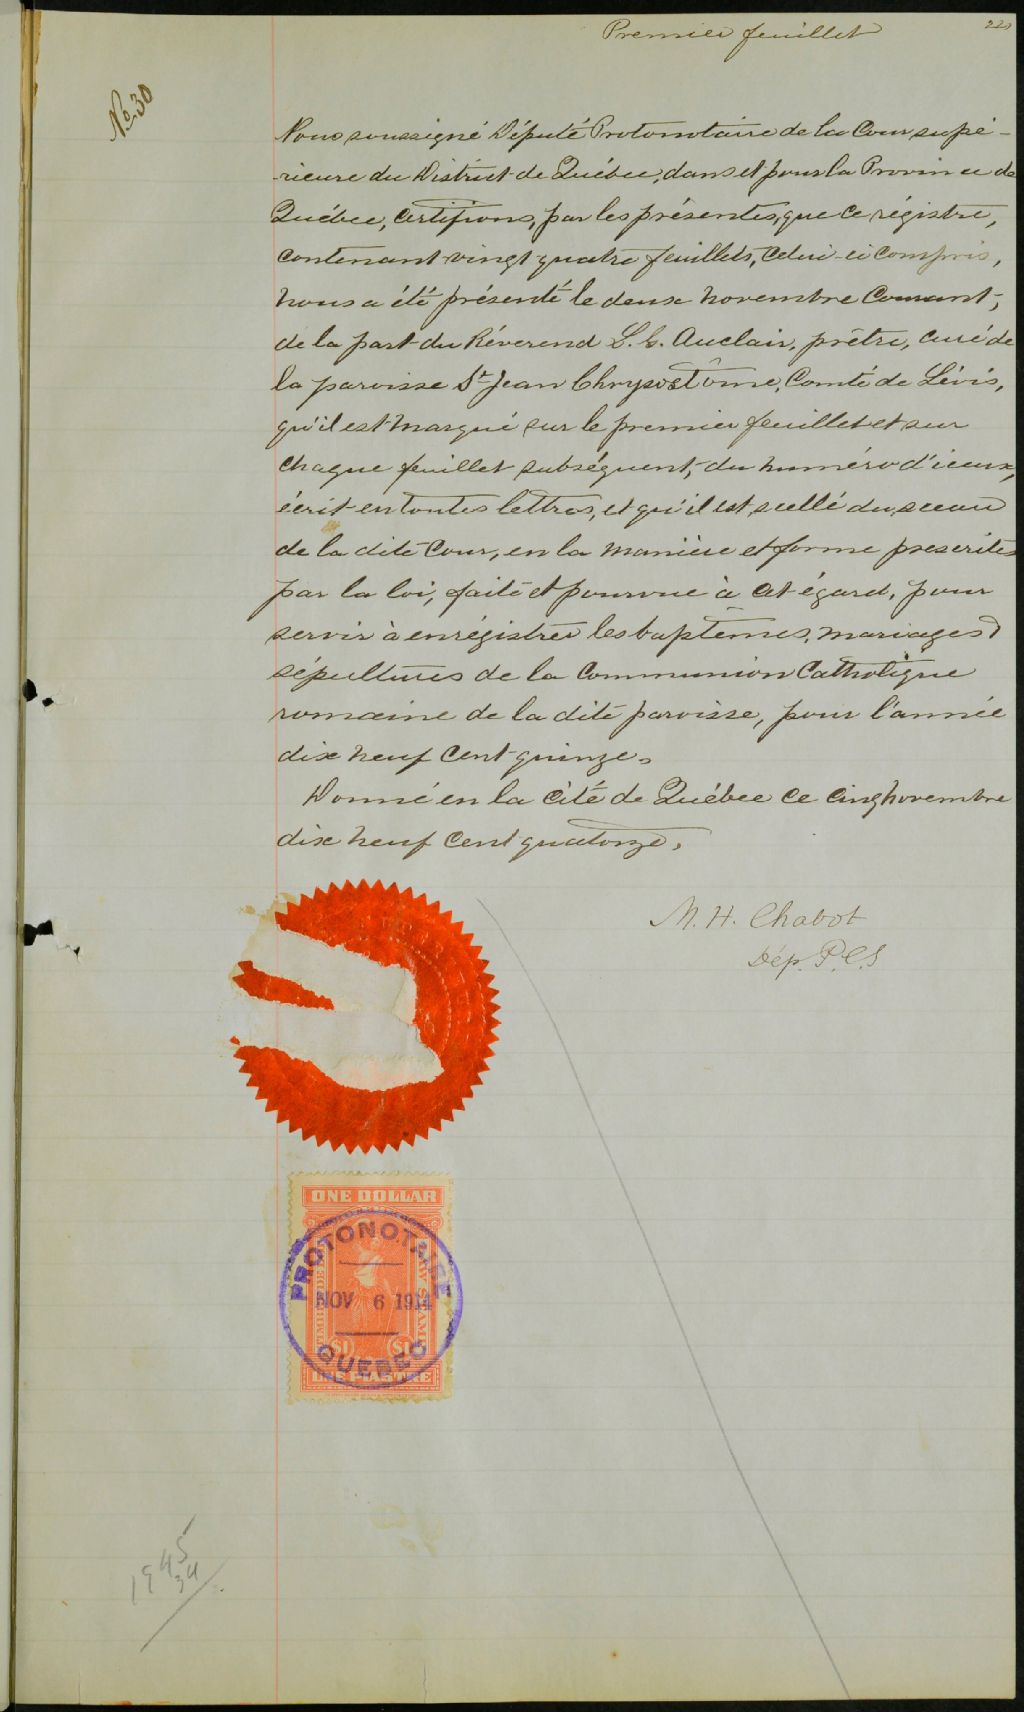 Premier feuillet
No. 30
Nous soussigné Député Protonotaire de la Cour supé-
-rieure du District de Québec, dans et pour la Province de
Québec, Certifions, par les présentes, que ce régistre,
contenant vingt quatre feuillets, celui-ci compris,
nous a été présenté le deux novembre Courant,
de la part du Révérend L. C. Auclair, prêtre, curé de
la paroisse St Jean Chrysostôme, Comté de Lévis,
qu'il est marqué sur le premier feuillet et sur
chaque feuillet subséquent, du numéro d'iceux,
écrit en toutes lettres, et qu'il est scellé du sceau
de la dite Cour, en la manière et forme prescrites
par la loi, faite et pourvue à cet égard, pour
servir à enrégistrer les baptêmes, mariages &
sépultures de la Communion Catholique
romaine de la dite paroisse, pour l'année
dix neuf cent quinze.
Donné en la cité de Québec ce cinq novembre
dix neuf cent quatorze.
M. H. Chabot
Dép. P.C.S
ONE DOLLAR
PROTONOTAIRE
NOV 6 1914
$1 $1
QUEBEC
UNE PIASTRE
1945
34